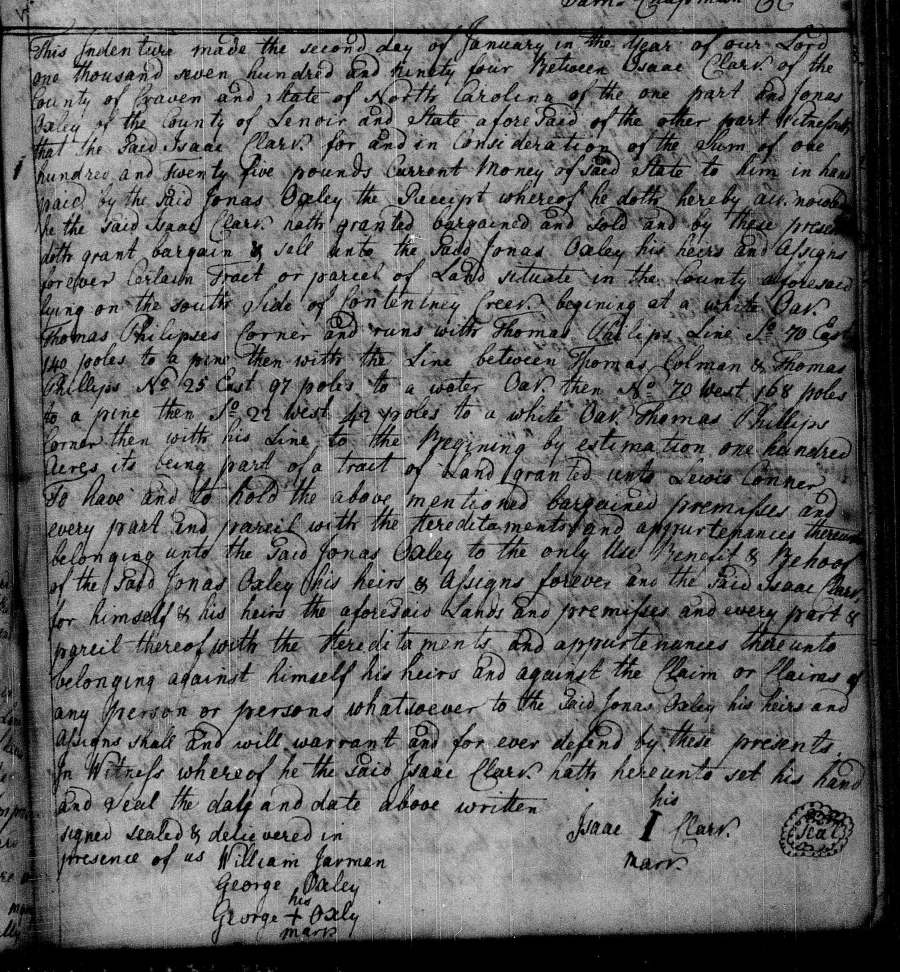 Chapman
This Indenture made the second day of January in the Year of our Lord
one thousand seven hundred and Ninety four Between Isaac Clark of the
County of Craven and State of North Carolina of the one part and Jonas
Oxley of the County of Lenoir and State aforesaid of the other part Witnesseth
that the Said Isaac Clark for and in Consideration of the Sum of one
hundred and Twenty five pounds Current Money of Said State to him in hand
paid by the Said Jonas Oxley the Receipt whereof he doth hereby
he the Said Isaac Clark hath granted bargained and sold and by these
doth grant bargain & sell unto the Said Jonas Oxley his heirs and Assigns
forever Certain Tract or parcel of Land situate in the County aforesaid
lying on the south Side of Contentney Creek begining at a white Oak
Thomas Philipses Corner and runs with Thomas Philips Line So. 70 East
140 poles to a pine then with the Line between Thomas Colman & Thomas
Phillips No. 25 East 97 poles to a water Oak then No. 70 West 168 poles
to a pine then So. 22 West 42 poles to a white Oak Thomas Phillips
Corner then with his Line to the Begining by estimation one hundred
Acres its being part of a tract of Land granted unto Lewis Conner
To have and to hold the above mentioned bargained premisses and
every part and parcil with the Hereditaments and appurtenances thereunto
belonging unto the Said Jonas Oxley to the only Use Benefit & Behoof
of the Said Jonas Oxley his heirs & Assigns forever and the Said Isaac Clark
for himself & his heirs the aforesaid Lands and premisses and every part &
parcil thereof with the Hereditaments and appurtenances thereunto
belonging against himself his heirs and against the Claim or Claims of
any person or persons whatsoever to the Said Jonas Oxley his heirs and
Assigns shall and will warrant and for ever defend by these presents.
In Witness whereof he the Said Isaac Clark hath hereunto set his hand
and Seal the day and date above written
his
Isaac I Clark
mark
Seal
signed sealed & delivered in
presence of us William Jarmen
George Oxley
his
George + Oxly
mark